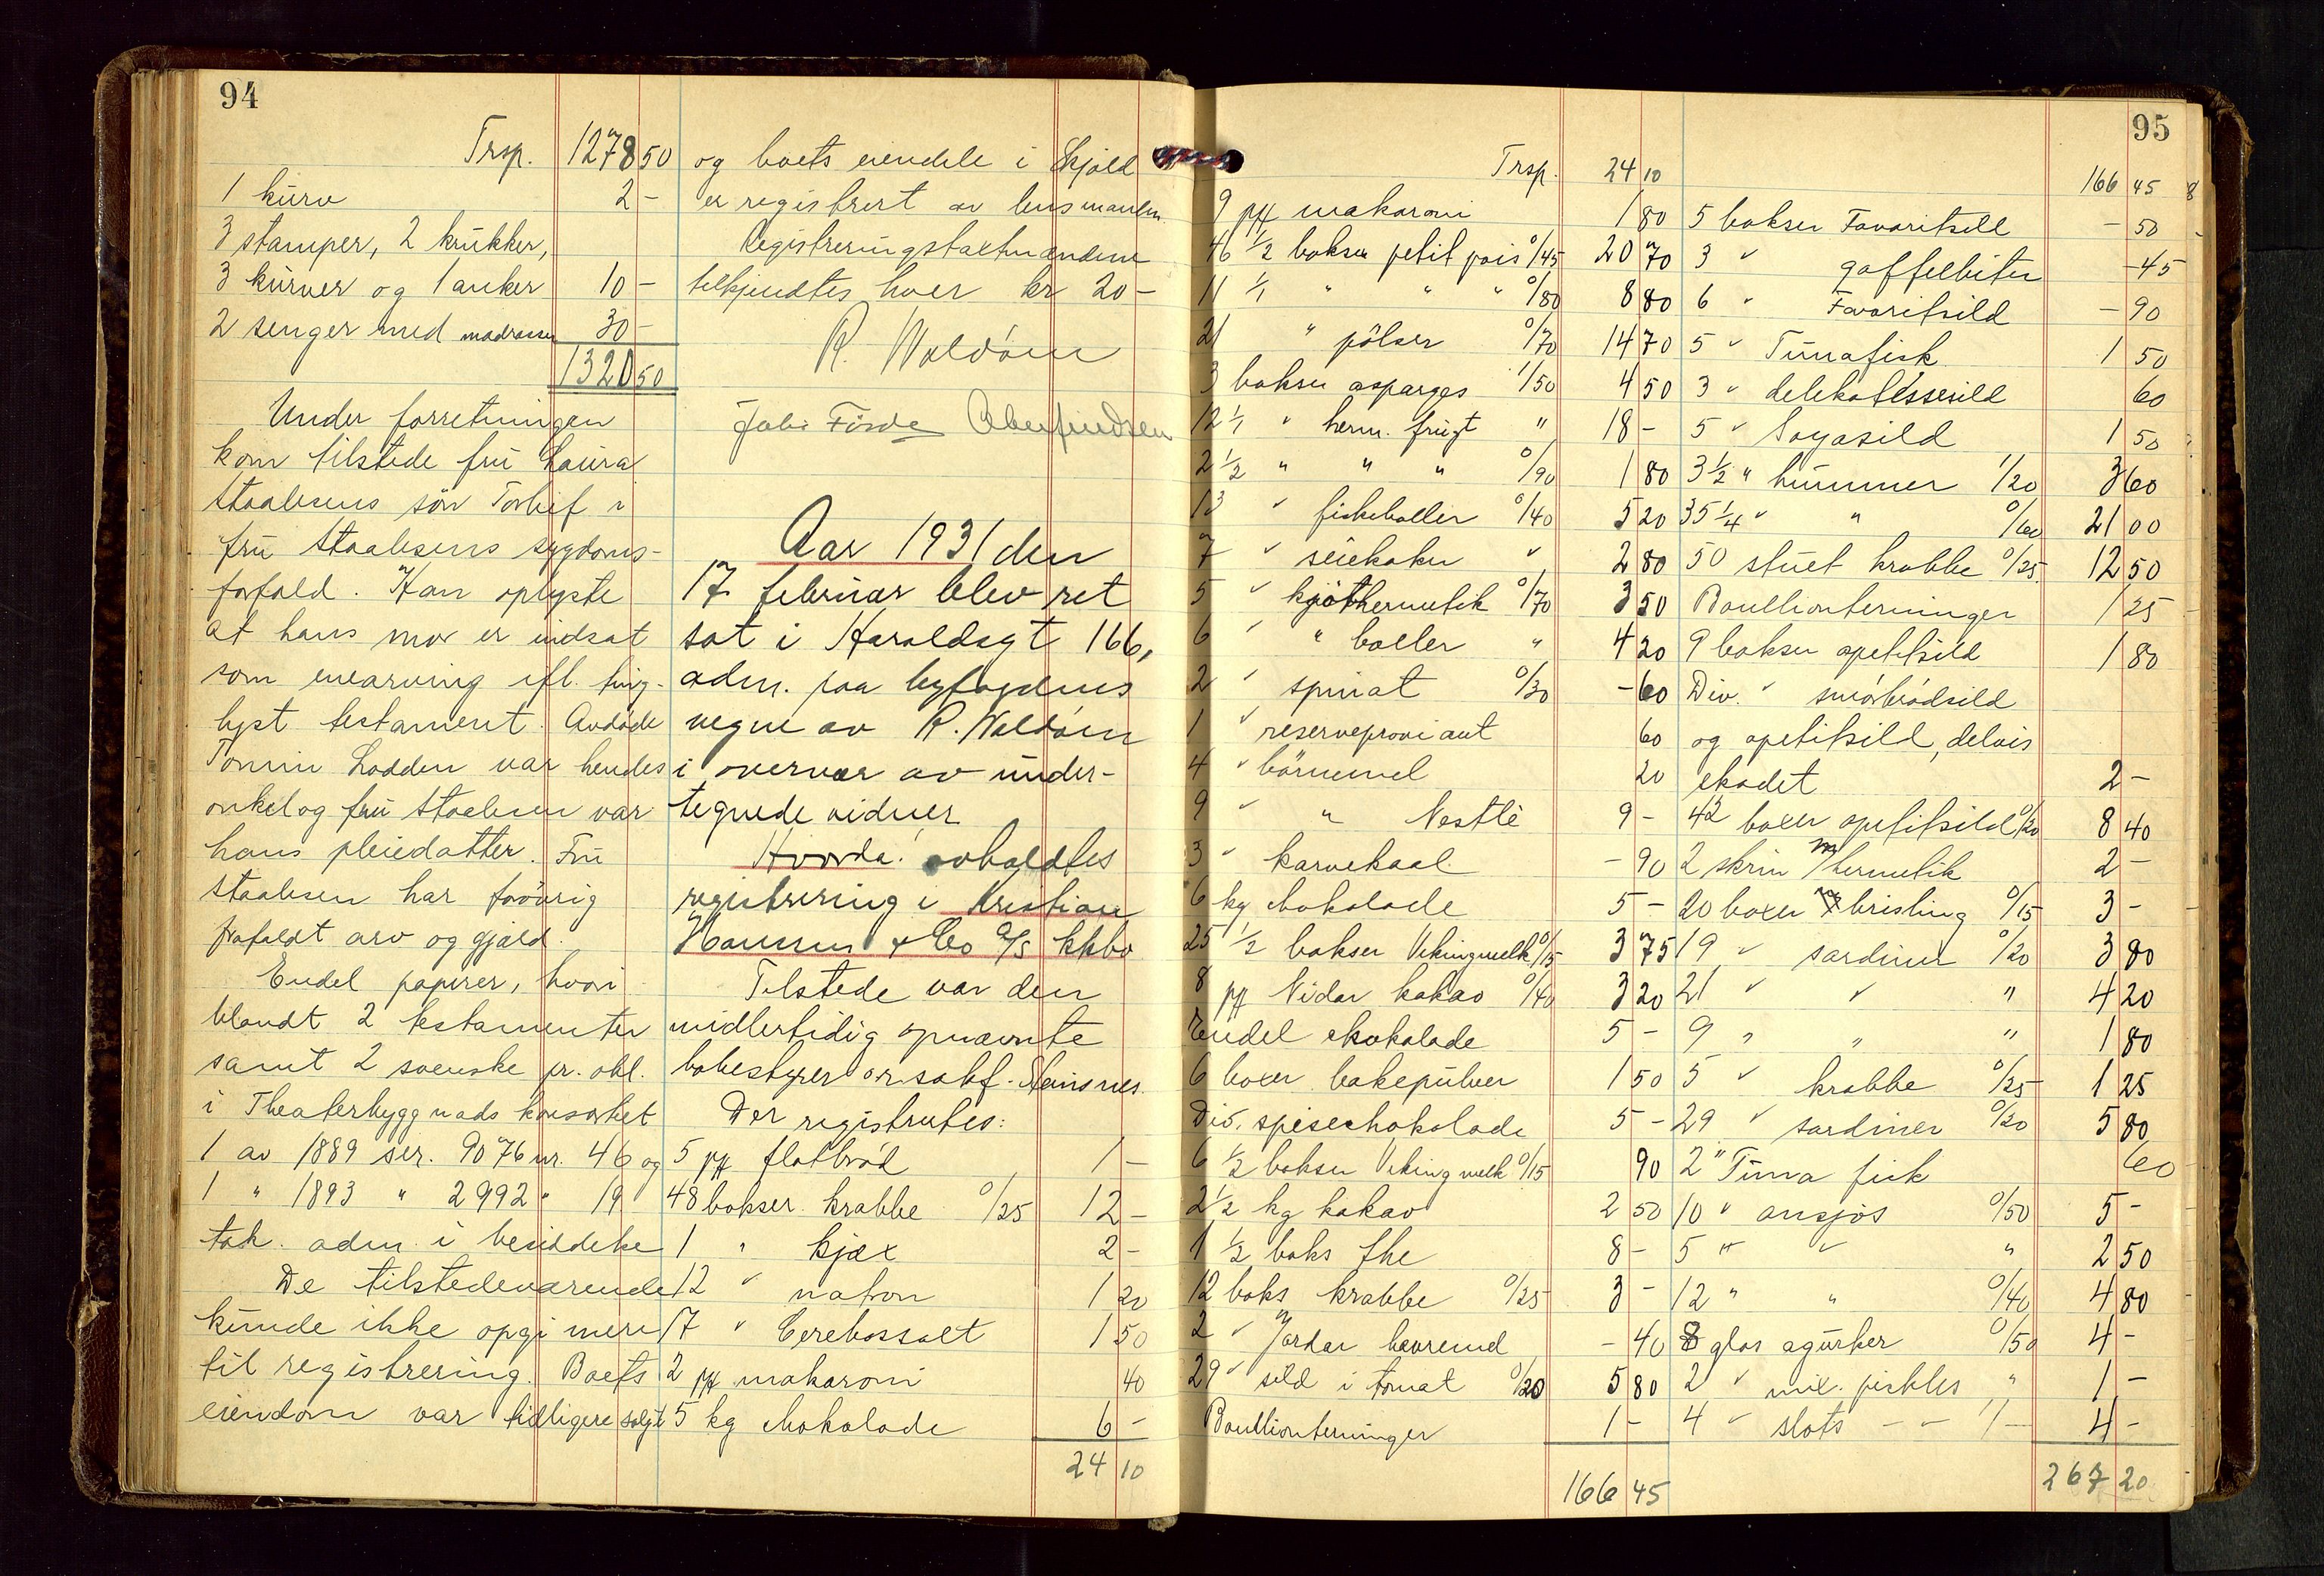 94
Trsp. 1278 50
1 kurv 2 -
3 stamper, 2 krukker,
3 kurver og 1 anker 10 -
2 senger med madrasser 30 -
1320 50
Under forretningen
kom tilstede fru Laura
Staalesens sön Torleif i
fru Staalesens sygdoms-
forfald. Han oplyste
at hans mor er indsat
som enearving ifl. ting-
lyst testament. Avdöde
Tönnin Lodden var hendes
onkel og fru Staalesen var
hans pleiedatter. Fru
Staalesen har forövrig
frafaldt arv og gjæld.
Endel papirer, hvori-
blandt 2 testamenter
samt 2 svenske pr. obl.
i Theaterbyggnads konsortiet
1 av 1889 ser. 9076 nr. 46 og
1 " 1893 " 2992 " 19
tok adm. i besiddelse
De tilstedeværende
kunde ikke opgi mere
til registrering. Boets
eiendom var tidligere solgt
og boets eiendele i Skjold
er registrert av lensmanden.
Registreringstaxtmændene
tilkjendtes hver kr 20 -
R. Waldóm
Aar 1931 den
17 februar blev ret
sat i Haraldsgt 166,
adm. paa byfogdens
vegne av R. Waldóm
i overvær av under-
tegnede vidner
Hvorda: avholdtes
registrering i Kristian
Hansen & Co A/S kkbo
Tilstede var den
midlertidig opnævnte
bobestyrer o.r.sakf. Steinsnes.
Der registrertes:
5 pk flatbröd 1 -
48 bokser krabbe 0/25 12 -
1 " kjæx 2 -
12 " natron 1 20
17 " Cerebossalt 1 50
2 pk makaroni 40
5 kg chokolade 6 -
24 10
95
Trsp. 24 10
9 pk makaroni 1 80
46 1/2 bokser petit pois 0/45 20 70
11 1/1 " " " 0/80 8 80
21 " pölser 0/70 14 70
3 bokser asparges 1/50 4 50
12 1/1 " herm. frugt " 18 -
2 1/2 " " " 0/90 1 80
13 " fiskeboller 0/40 5 20
7 " seiekaker " 2 80
5 " kjöthermetik 0/70 3 50
6 " " boller " 4 20
2 " spinat 0/30 - 60
1 " reserveproviant 60
4 " börnemel 20
9 " " Nestlè 9 -
3 " karvekaal - 90
6 kg chokolade 5 -
25 1/2 bokser Vikingmelk 0/15 3 75
8 pk Nidar kakao 0/40 3 20
Endel chokolade 5 -
6 boxer bakepulver 1 50
Div. spisechokolade 5 -
6 1/2 bokser Viking melk 0/15 90
2 1/2 kg kakao 2 50
1 1/2 boks the 8 -
12 boks krabbe 0/25 3 -
2 " Jordan havremel - 40
29 " sild i tomat 0/20 5 80
Boullionterninger 1 -
166 45
166 45
5 bokser Favoritsill - 50
3 " gaffelbiter - 45
6 " Favoritsild - 90
5 " Tunafisk 1 50
3 " delekatessesild 60
5 " Soyasild 1 50
3 1/2 " hummer 1/20 3 60
35 1/4 " " 0/60 21 00
50 stuet krabbe 0/25 12 50
Boullionterninger 1 25
9 bokser apetitsild 1 80
Div. " smörbrödsild
og apetitsill, delvis
skadet 2 -
42 boxer apetitsild 0/20 8 40
2 skrin hermetik 2 -
20 boxer brisling 0/15 3 -
19 " sardiner 0/20 3 80
21 " " " 4 20
9 " " " 1 80
5 " krabbe 0/25 1 25
29 " sardiner 0/20 5 80
2 " Tuna fisk 60
10 " ansjos 0/50 5 -
5 " " " 2 50
12 " " 0/40 4 80
8 glas agurker 0/50 4 -
2 " mix. pickles " 1 -
4 " slots - - 1/- 4 -
267 20